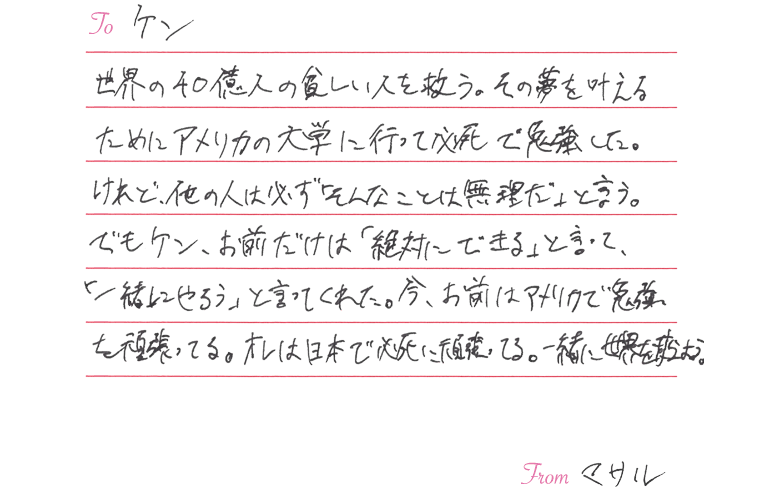 To ケン
世界の40億人の貧しい人を救う。その夢を叶える
ためにアメリカの大学に行って必死で勉強した。
けれど、他の人は必ず「そんなことは無理だ」と言う。
でもケン、お前だけは「絶対にできる」と言って、
「一緒にやろう」と言ってくれた。今、お前はアメリカで勉強
を頑張ってる。オレは日本で必死に頑張ってる。一緒に世界を救おう。
From マサル